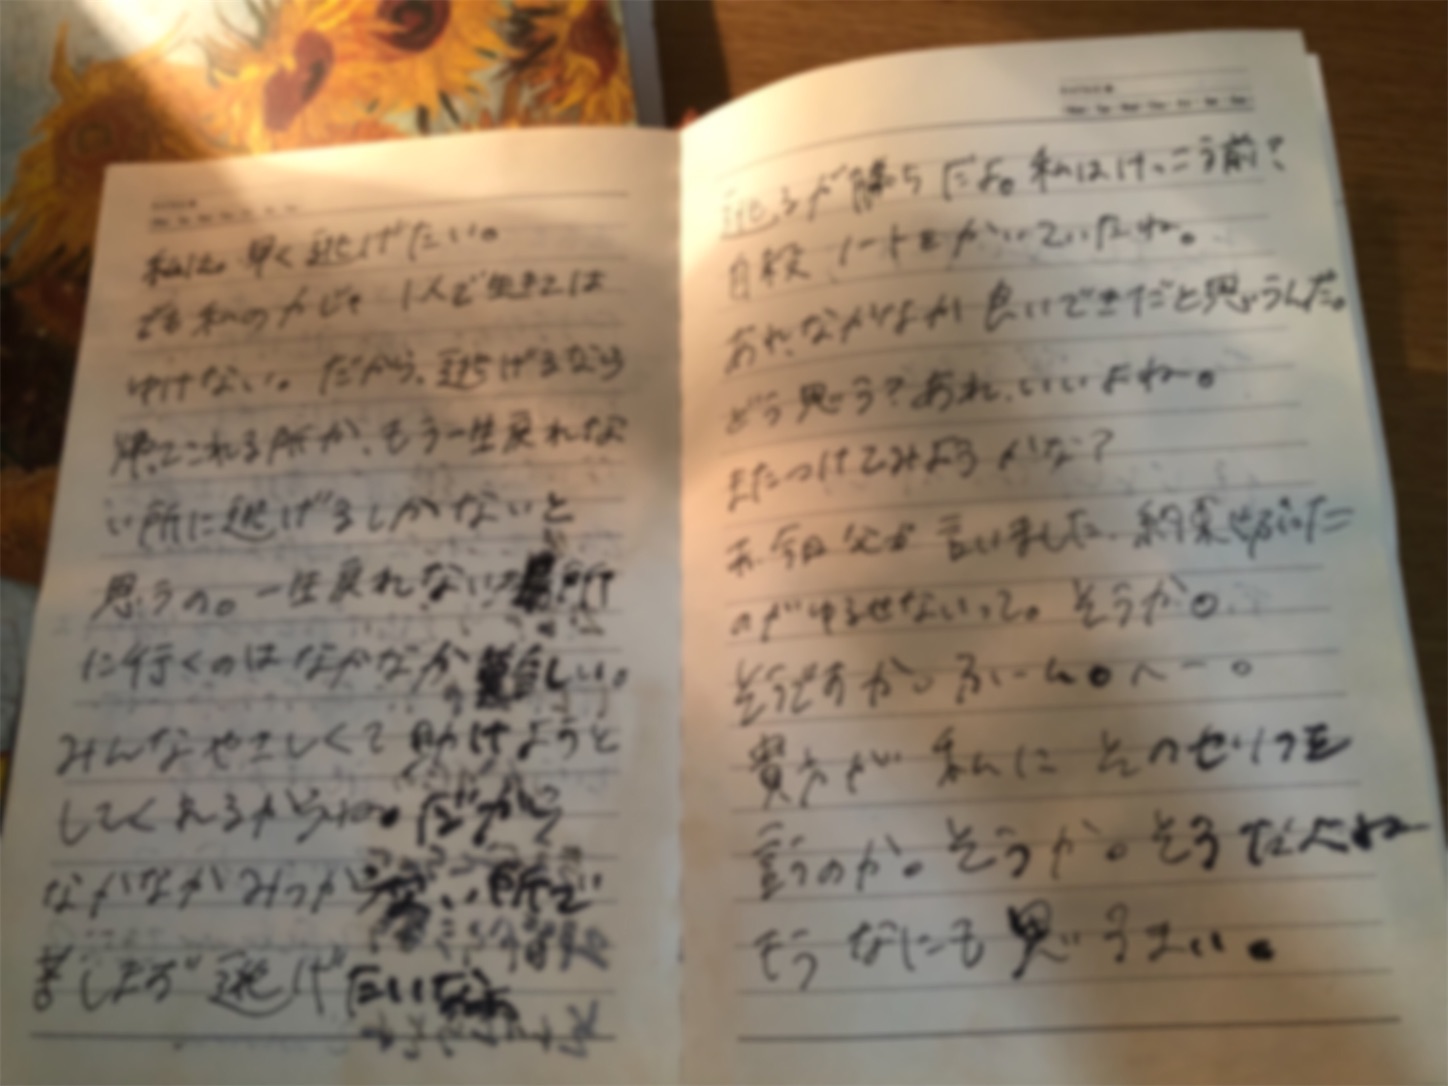 私は。早く逃げたい。
でも私の力じゃ 1人で生きては
ゆけない。だから、逃げるなら
帰ってこれる所か、もう一生戻れな
い所に逃げるしかないと
思うの。一生戻れない所
に行くのはなかなか難しい。
みんなやさしくて助けようと
してくれるからね。だから
なかなかみつからない所で
逃げたいなぁ
逃るが勝ちだよ。私はけっこう前?
ノートをかいていたね。
あれ、なかなか良いできだと思うんだ。
どう思う?あれ、いいよね。
またつけてみようかな?
あ、今日父が言いました、約束やぶった
のがゆるせないって。そうか。
そうですか。ふーん。へー。
貴方が私にそのセリフを
言うのか。そうか。そうなんだね
もうなにも思うまい。